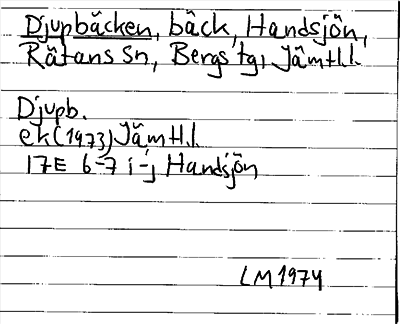 Djupbäcken, bäck, Handsjön,
Rätans Sn, Bergs tg, Jämtl.l.
Djupb.
ek (1973) Jämtl.l.
17E 6-7 i-j Handsjön
LM 1974